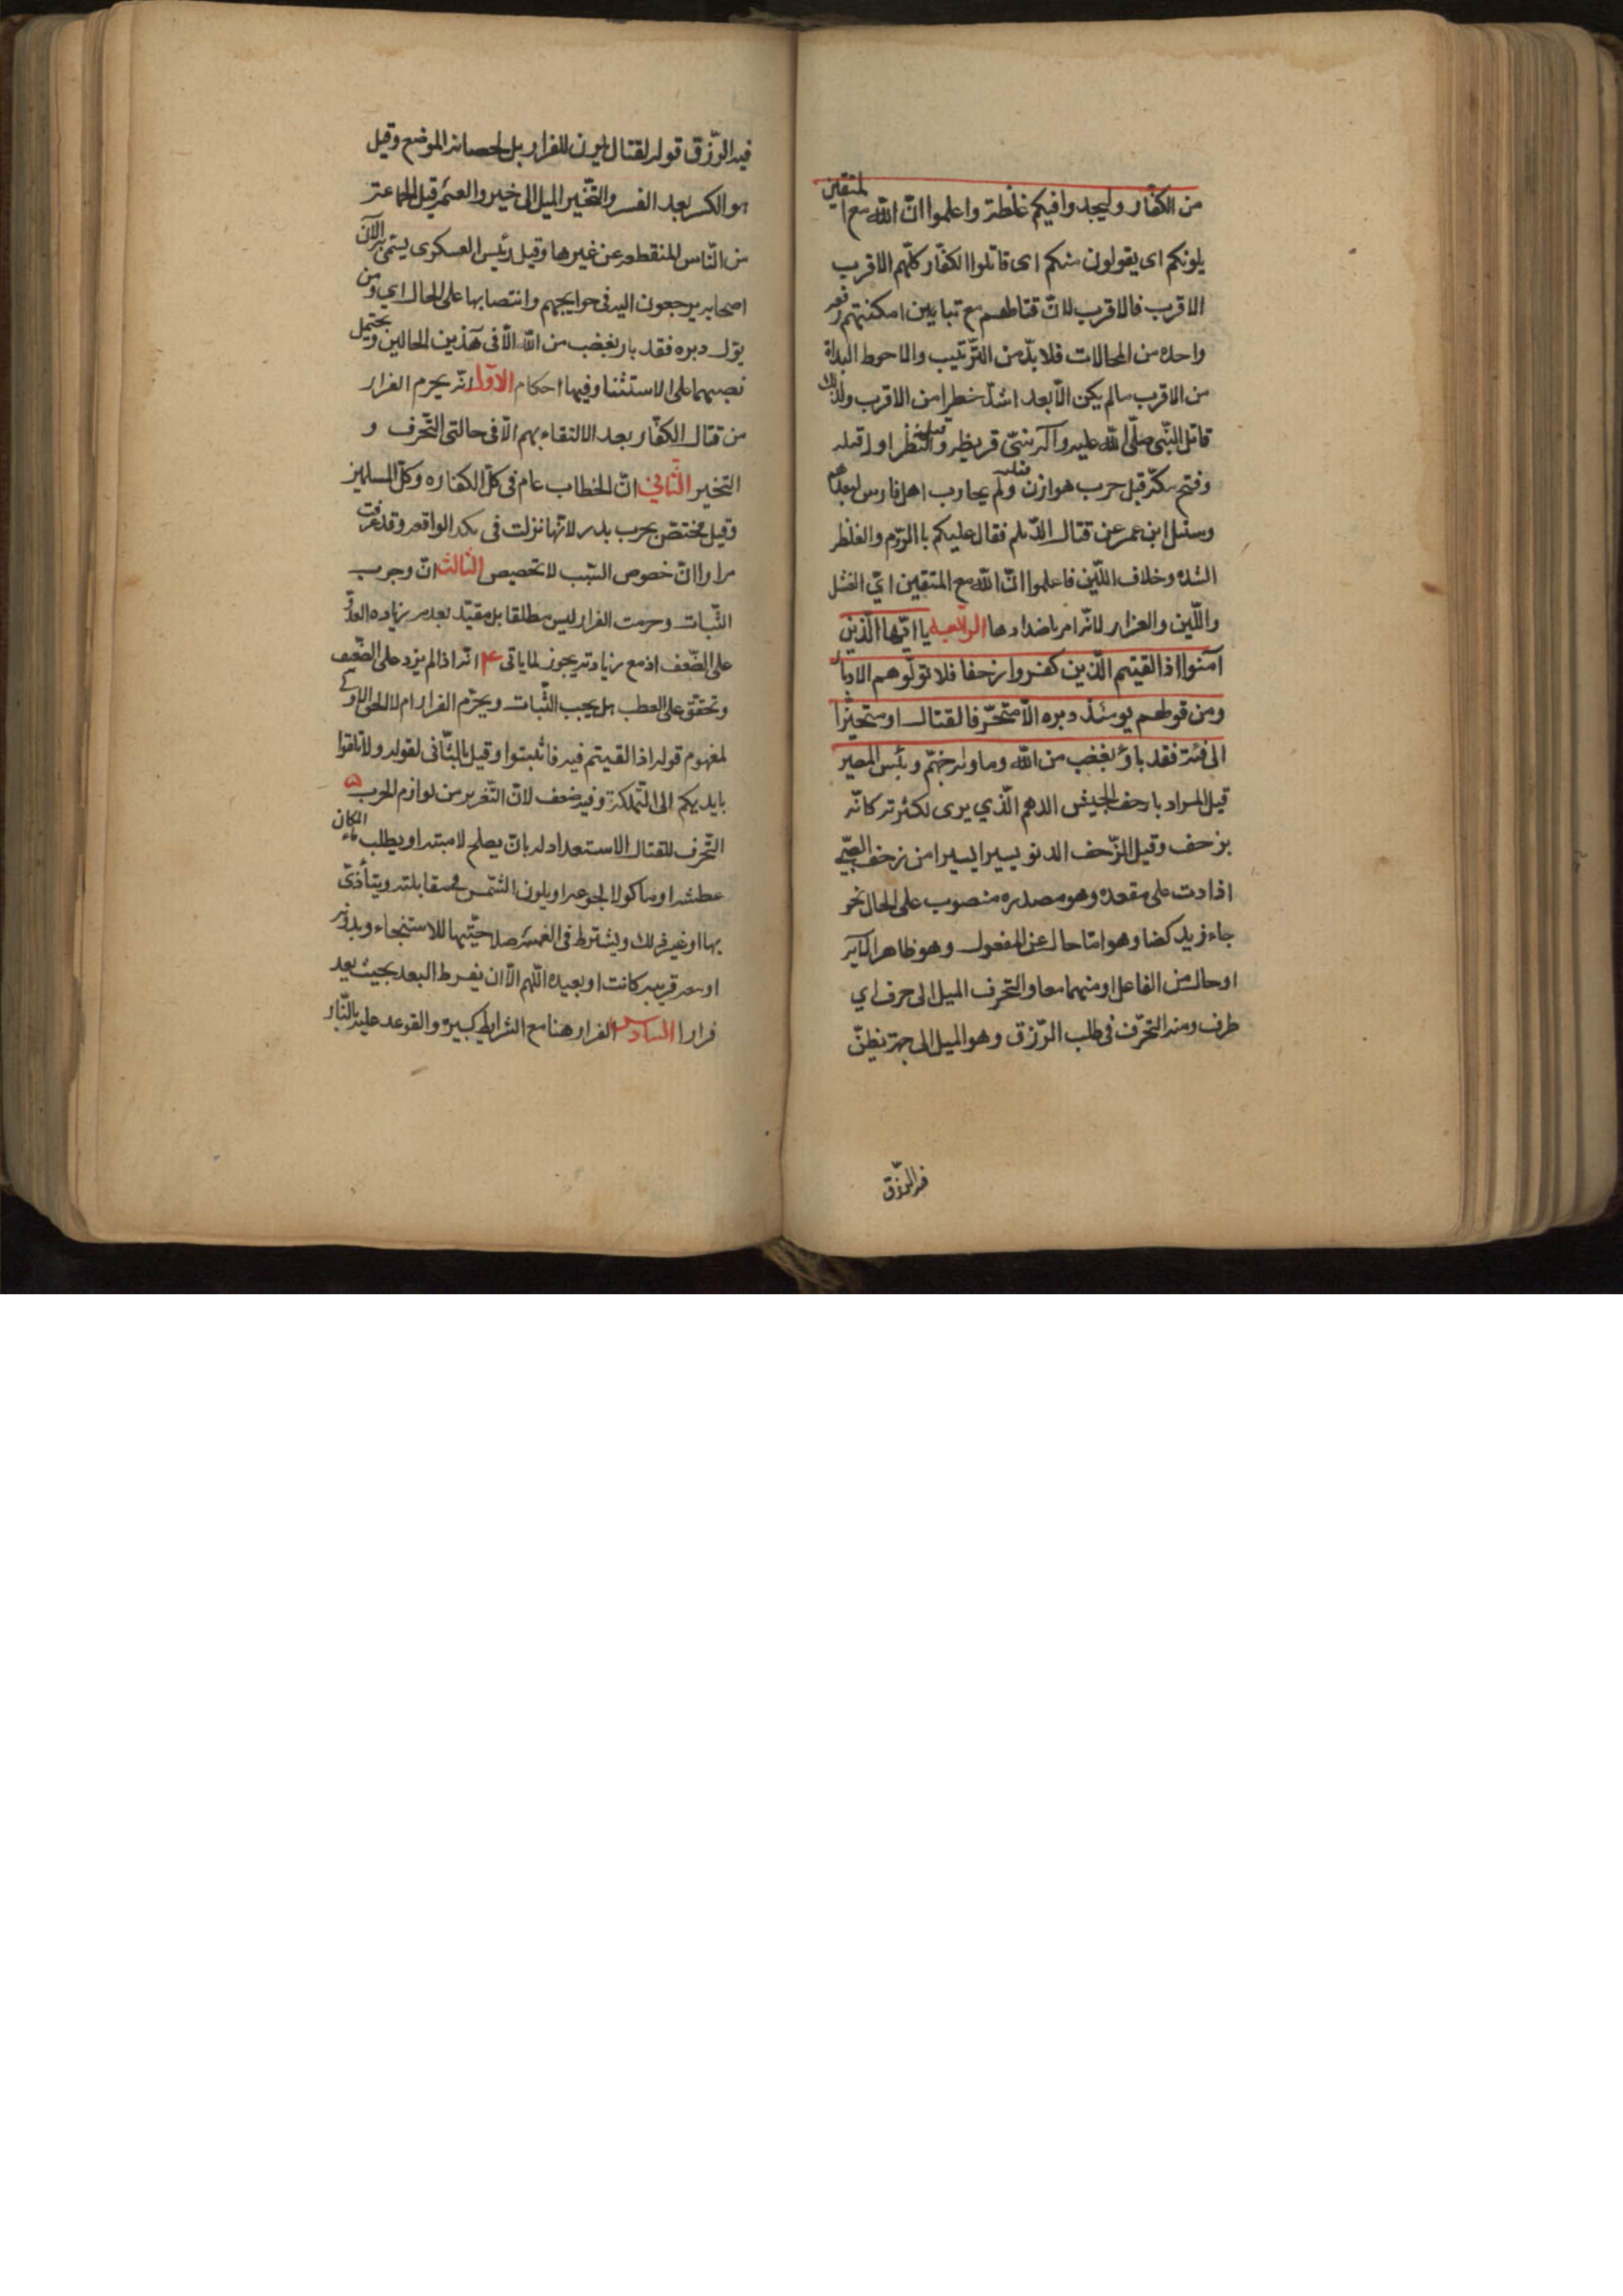 من الكفّار وليجدوا فيكم غلظة واعلموا انّ الله مع المتقين
يلونكم اى يقولون منكم اى قاتلوا الكفّار كلّهم الاقرب
الاقرب فالاقرب لانّ قتالهم مع تباين امكنتهم دفعه
واحده من المحالات فلابدّ من الترّتيب والاحوط البداة
من الاقرب مالم يكن الأبعد اشدّ خطرا من الاقرب ولذلك
قاتل النّبى صلّى الله عليه وآله بنىّ قريظه والنظر اولا قبله
وفتح مكّه قبل حرب هوازن ولم يحارب اهل فارس لبعدها
وسئل ابن عمر عن قتال الدّيلم فقال عليكم باالروّم والغلظه
الشده وخلاف اللّين فاعلموا انّ الله مع المتقين اىّ الفشل
واللّين والفرار لانّه امر باضدادها الرابعه يا ايّها الّذين
آمنوا اذا لقيتم الّذين كفروا زحفا فلا تولّوهم الادبار
ومن قولهم يومئذ دبره الاّ متحرّفا لقتال او متحيّزا
الى فئة فقد باؤ بغضب من الله وماوله جهنّم وبئس المصير
قيل المراد بارحف الجيش الدهم الّذي يرى لكثرته كانّه
يزحف وقيل الزّحف الدنو يسيرا يسيرا من زحف الصبّي
اذا دب على مقعده وهو مصدره منصوب على الحال نحو
جاء زيد ركضا وهو امّا حال عن المفعول وهو ظاهر
او حال من الفاعل او منهما معا والتحرف الميل الى حرف اي
طرف ومنه التحرّف فى طلب الرّزق وهو الميل الى جهة يظنّ
فيه الرّزق
فيه الرّزق قوله لقتال للفرار بل لحصانة الموضع وقيل
هو الكر بعد الفر والتحّيز الميل الى حيز والفئه قيل الجماعة
من النّاس المنقطعه عن غيرها وقيل رئيس العسكرى يسمّى به لان
اصحابه يرجعون اليه فى حوايجهم وانتصابها على الحال اي ومن
يول دبره فقد بار بغضب من الله الاّ فى هذين الحالين ويحتمل
نصبهما على الاستثنا وفيها احكام الاوّل انّه يحرم الفرار
من قتال الكفّار بعد الالتقاء بهم الاّ فى حالتى التّحرف و
التحيز الثّاني انّ الخطاب عام فى كلّ الكفاره وكلّ المسلمين
وقيل مختصّ بحرب بدر لانّها نزلت فى تلك الواقعه وقد عرفت
مرارا انّ خصوص السّبب لا تخصيص الثالث انّ وجوب
الثّبات وحرمت الفرار ليس مطلقا بل مقيّد بعدم زياده العدوّ
على الضّعف اذ مع زيادته يجوز لما ياتى ۴ انّه اذا لم يزد على الضّعيف
وتحقق على العطب هل يجب الثّبات ويحرّم الفرار ام لا الحق الاول
لمفهوم قوله اذا لقيتم فيه فاثبتوا وقيل بالثّانى لقوله ولا تلقوا
بايديكم الى التّهلكة وفيه ضعف لانّ التّغرير من لوازم الحرب ۵
التّحرف للقتال الاستعداد له بانّ يصلح لامته او يطلب المكان ماء
عطشه او ماكولا لجوعه او يكون الشّمس فى مقابلته ويتأذىّ
بها او غير ذلك ويشترط فى الفئه صلاحيّتها للاستنجاء وبدونه
او معه قريبه كانت او بعيده اللّهم الاّ ان يفرط البعد بحيث يعد
فرارا السادس الفرار هنا مع الشرايط كبيره والقوعد عليه بالنّار